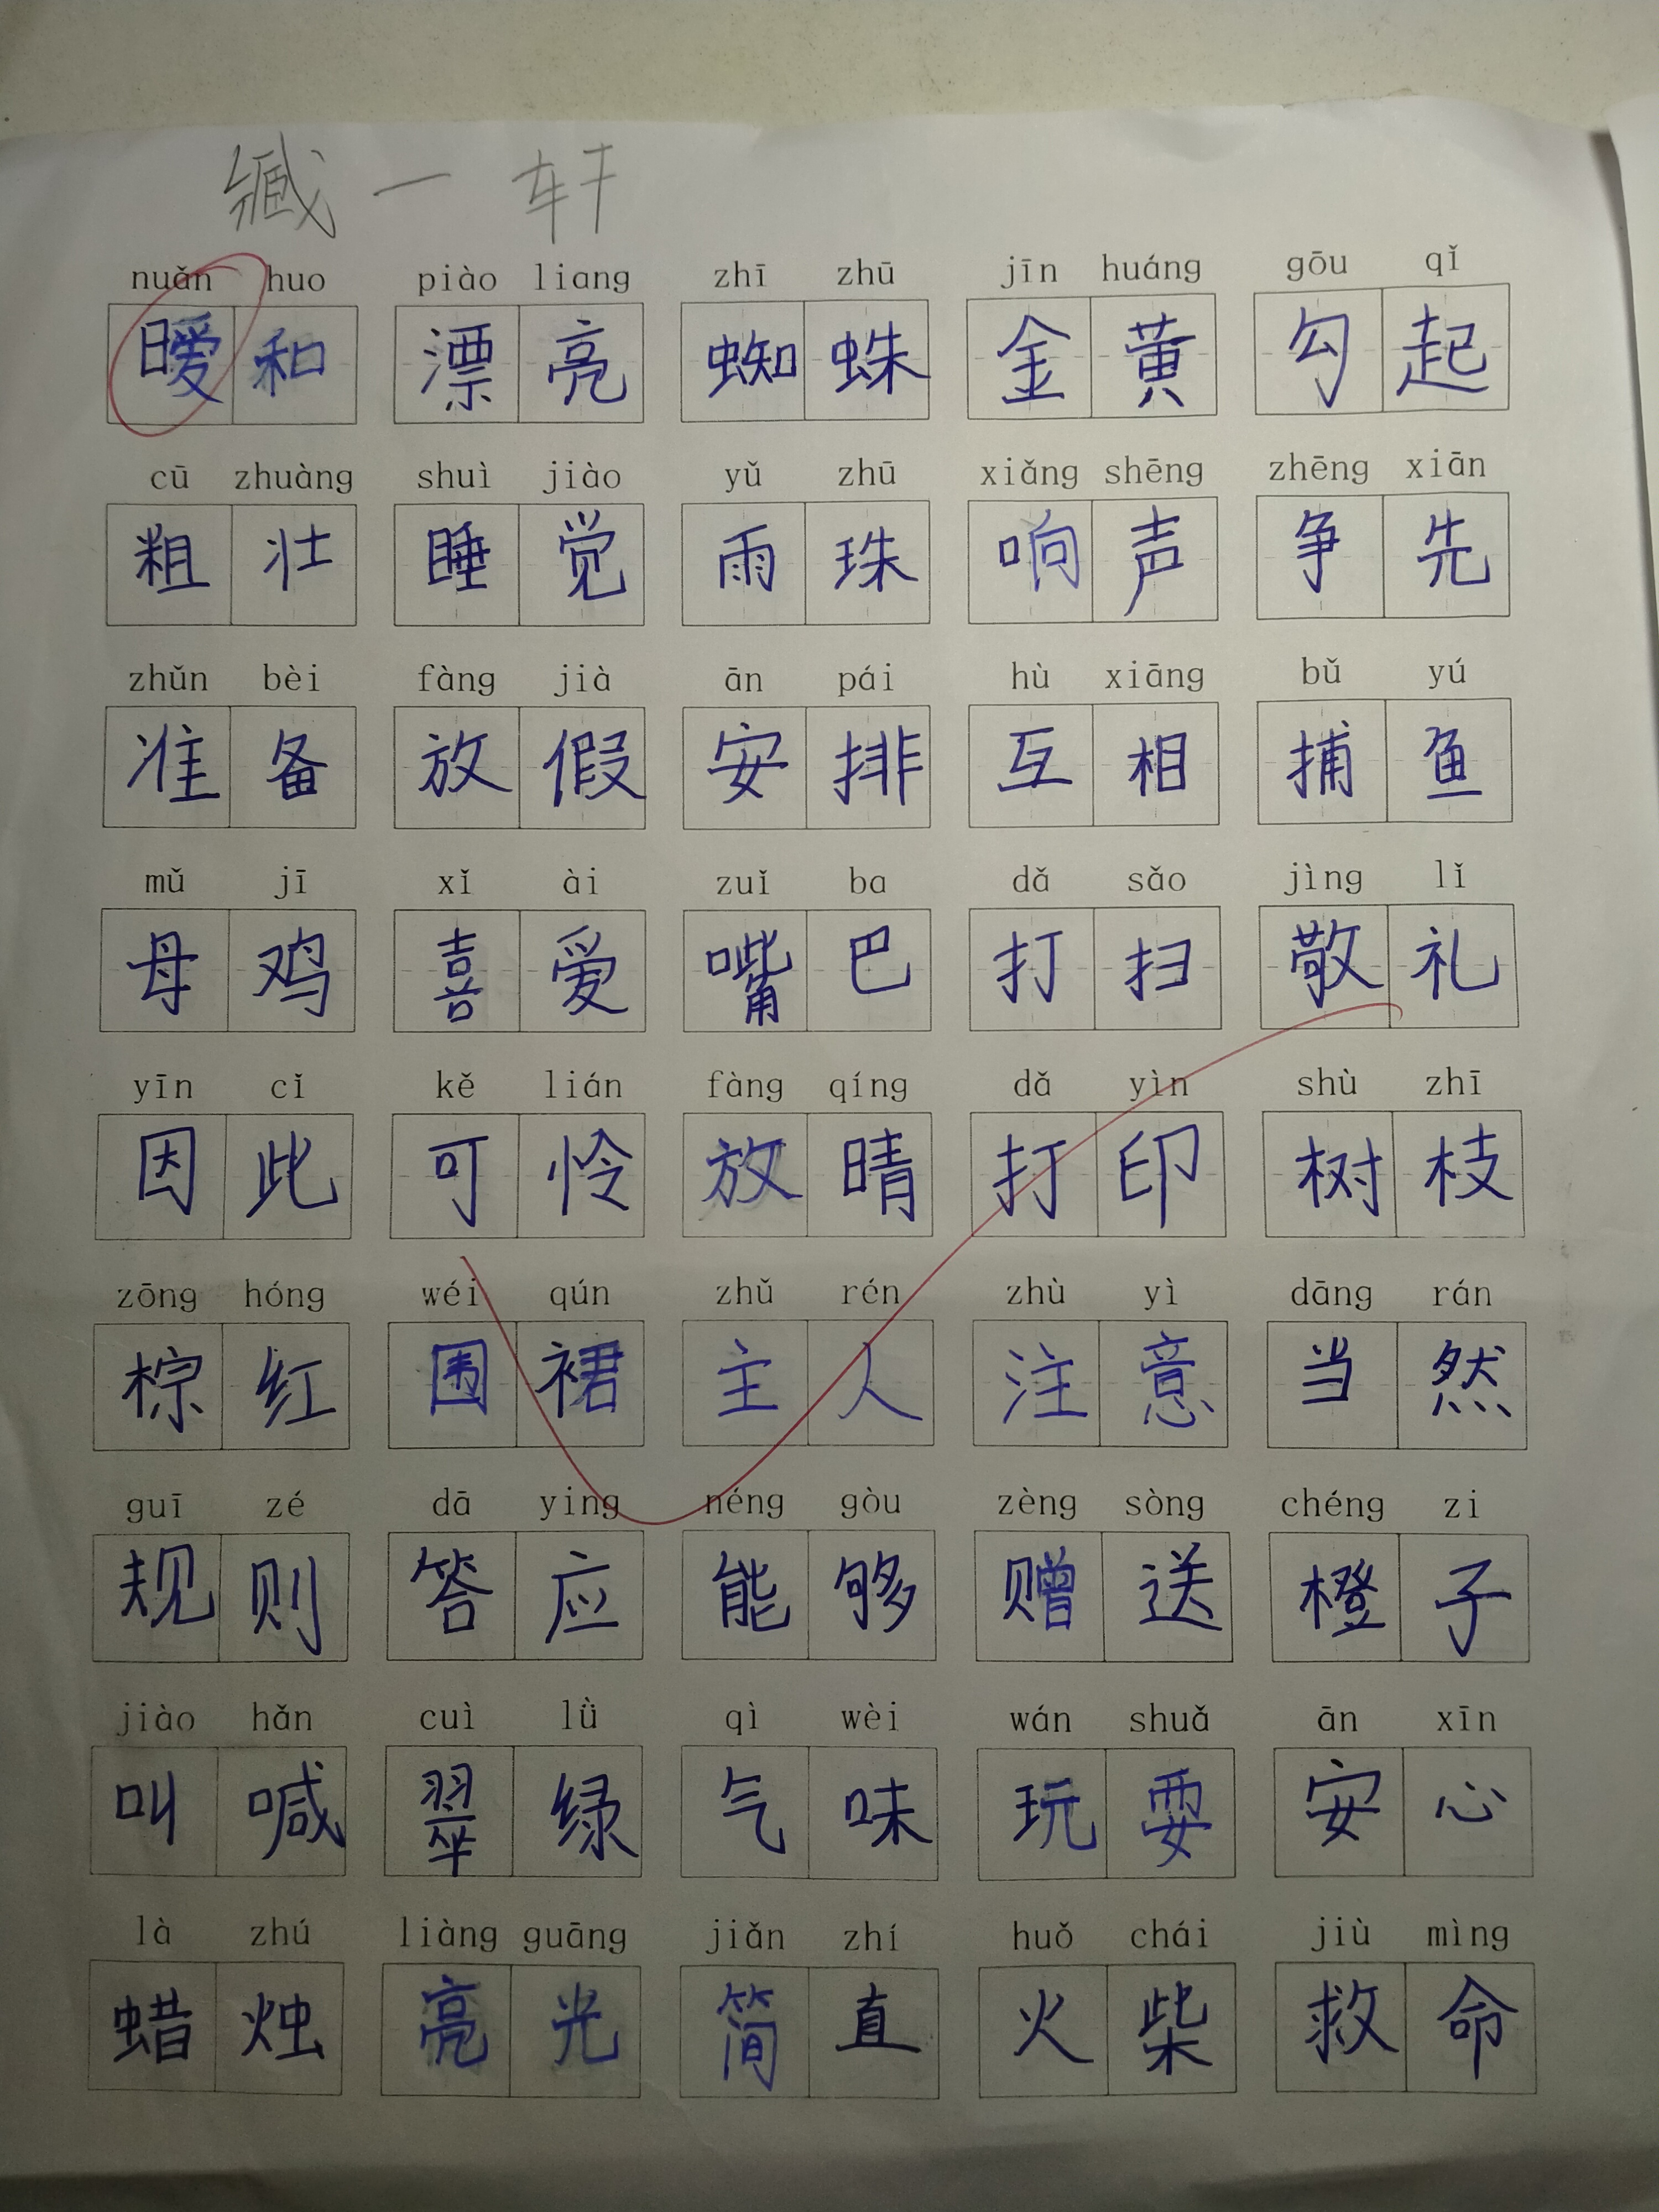 一轩
nuǎn huo piào liang zhī zhū jīn huáng gōu qǐ
暧和 漂亮 蜘蛛 金黄 勾起
cū zhuàng shuì jiào yǔ zhū xiǎng shēng zhēng xiān
粗壮 睡觉 雨珠 响声 争先
zhǔn bèi fàng jià ān pái hù xiāng bǔ yú
准备 放假 安排 互相 捕鱼
mǔ jī xǐ ài zuǐ ba dǎ sǎo jìng lǐ
母鸡 喜爱 嘴巴 打扫 敬礼
yīn cǐ kě lián fàng qíng dǎ yìn shù zhī
因此 可怜 放晴 打印 树枝
zōng hóng wéi qún zhǔ rén zhù yì dāng rán
棕红 围裙 主人 注意 当然
guī zé dā ying néng gòu zèng sòng chéng zi
规则 答应 能够 赠送 橙子
jiào hǎn cuì lǜ qì wèi wán shuǎ ān xīn
叫喊 翠绿 气味 玩耍 安心
là zhú liàng guāng jiǎn zhí huǒ chái jiù mìng
蜡烛 亮光 简直 火柴 救命